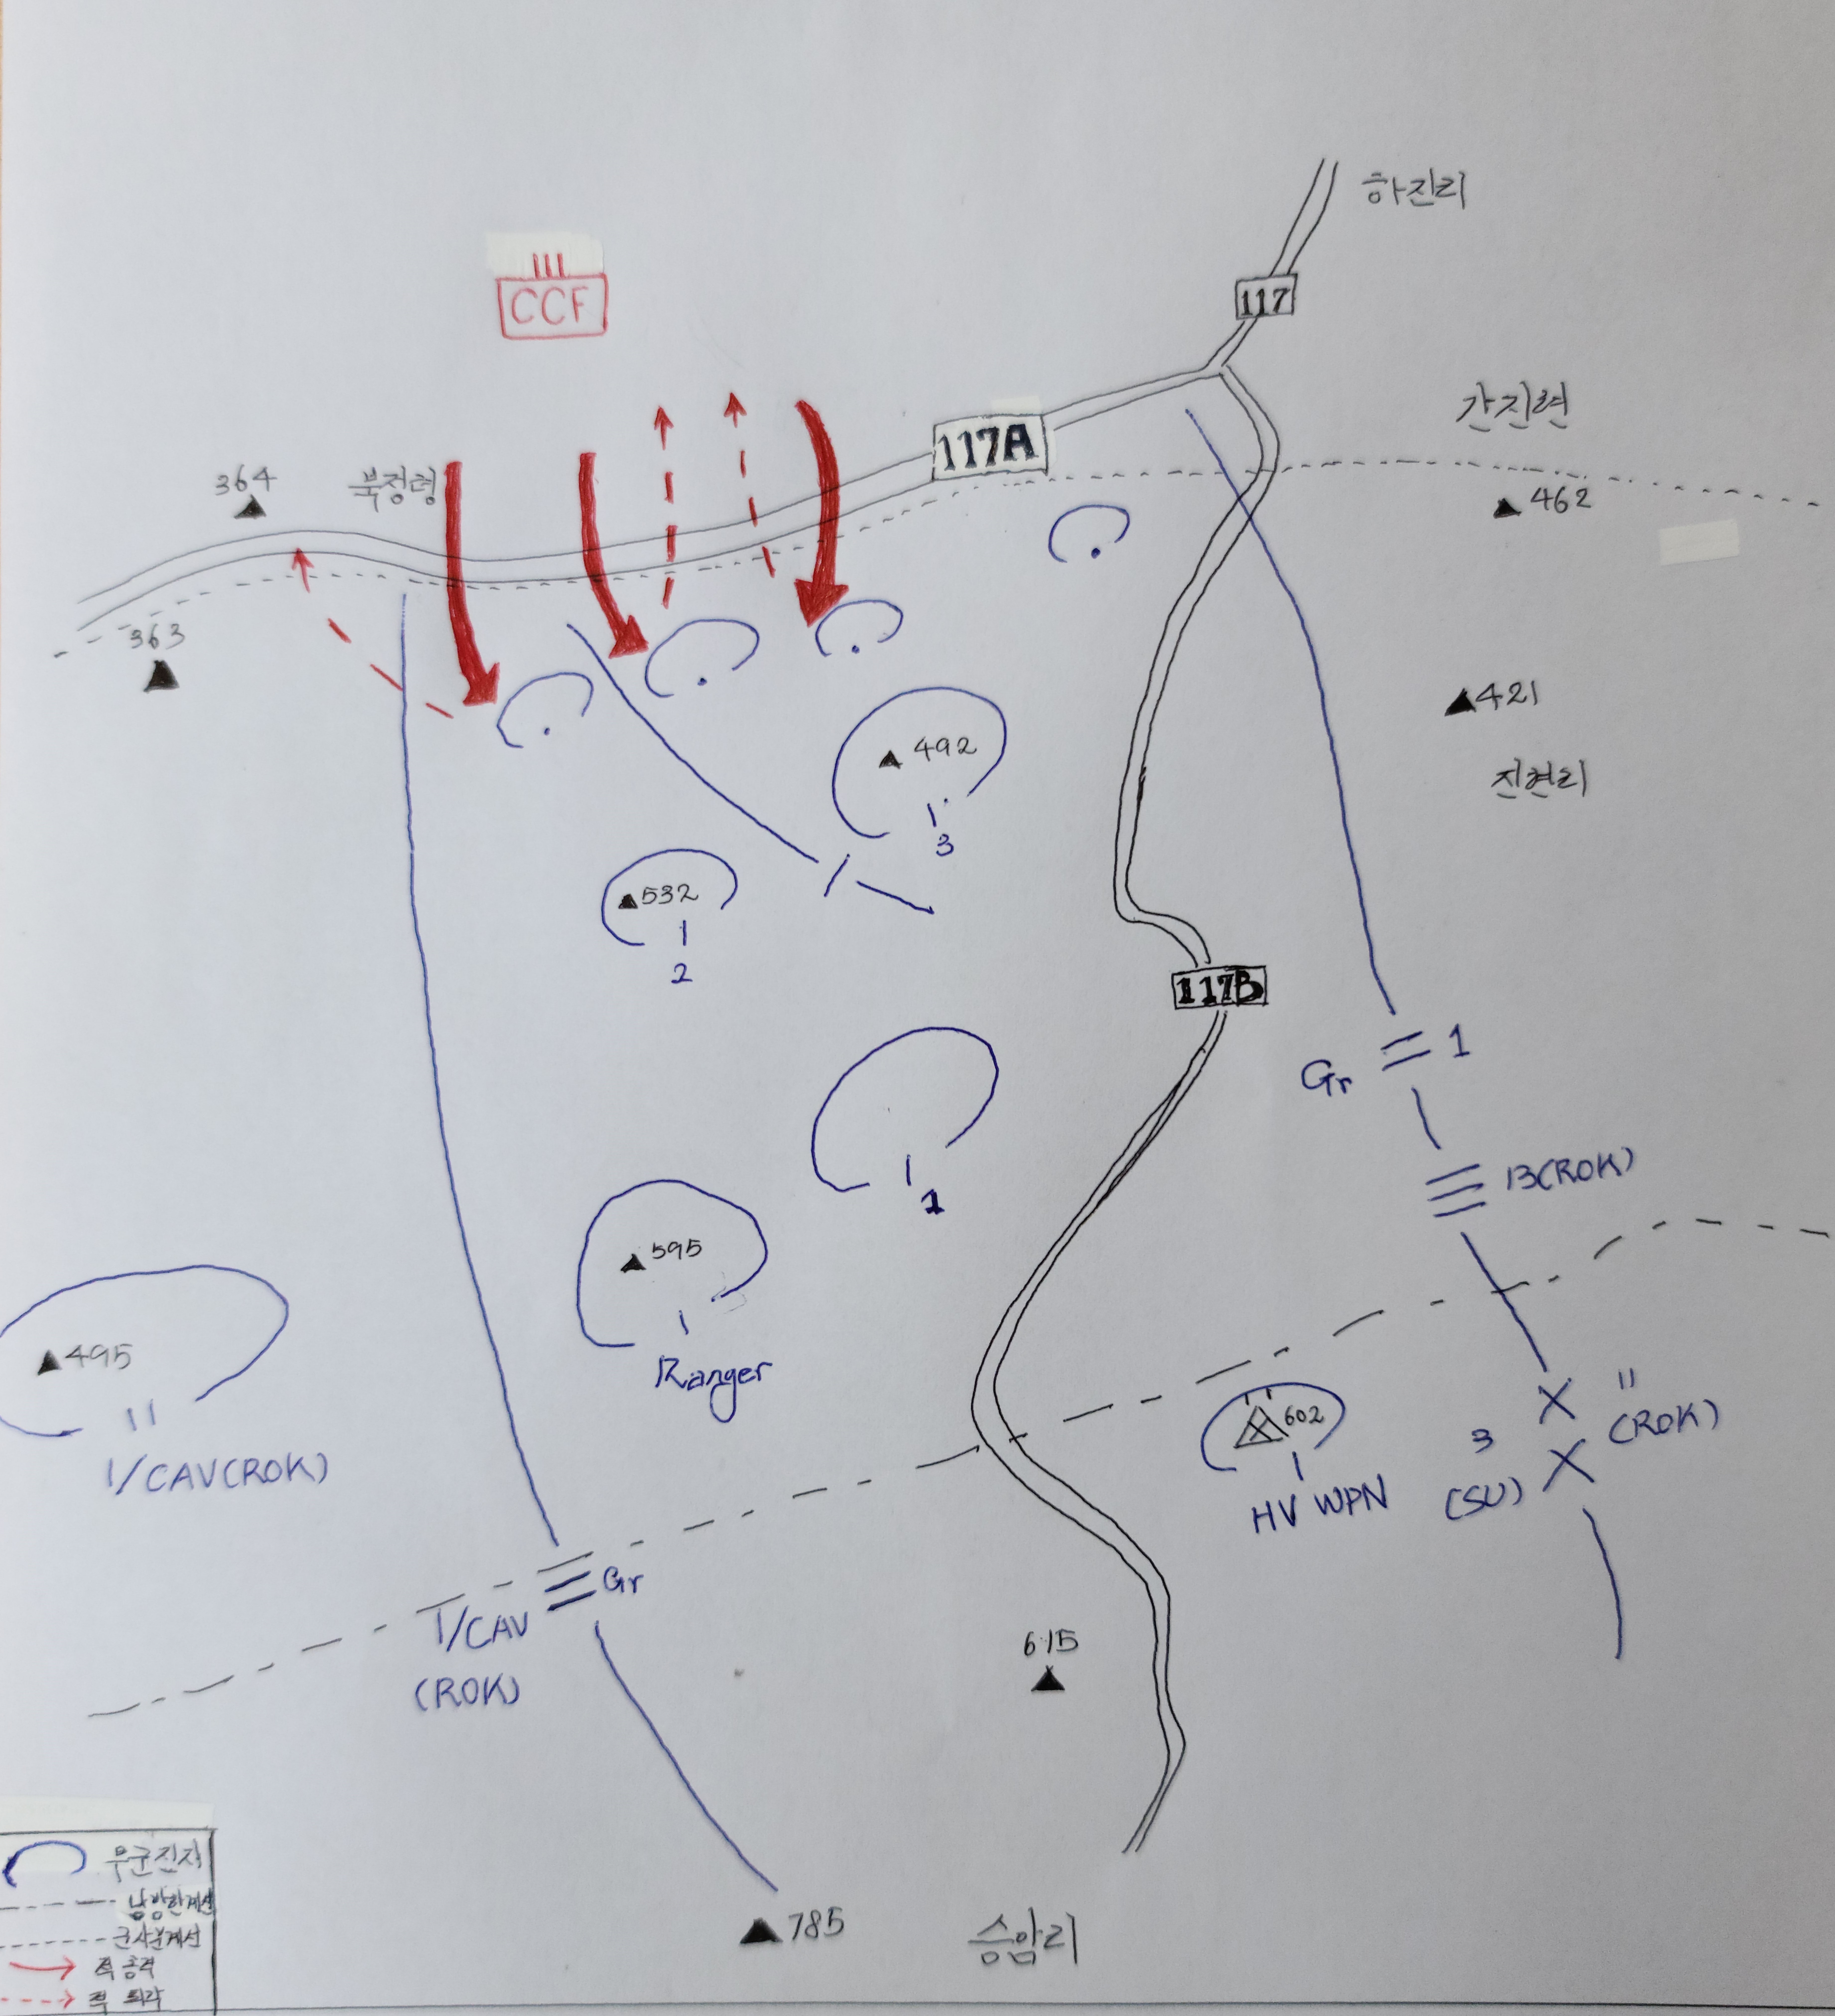 하진리
117
CCF
간지련
117A
462
364
북정령
363
421
492
진현리
3
532
2
117B
1
Gr
13(ROK)
1
595
Ranger
495
1/CAV(ROK)
602
HV WPN
11
(ROK)
3
(SU)
Gr
1/CAV
(ROK)
615
785
승암리
우군진지
남방한계선
군사분계선
적 총격
적 퇴각